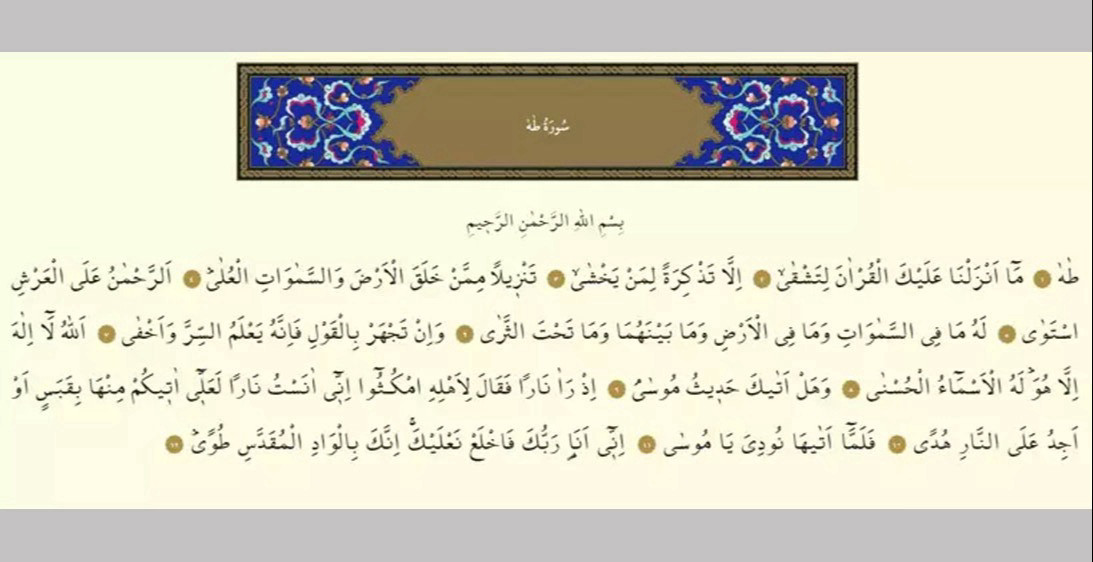 سُورَةُ طٰهٰ
بِسْمِ اللّٰهِ الرَّحْمٰنِ الرَّح۪يمِ
طٰهٰ ﴿١﴾ مَٓا اَنْزَلْنَا عَلَيْكَ الْقُرْاٰنَ لِتَشْقٰىۙ ﴿٢﴾ اِلَّا تَذْكِرَةً لِمَنْ يَخْشٰىۙ ﴿٣﴾ تَنْز۪يلاً مِمَّنْ خَلَقَ الْاَرْضَ وَالسَّمٰوَاتِ الْعُلٰىۜ ﴿٤﴾ اَلرَّحْمٰنُ عَلَى الْعَرْشِ
اسْتَوٰى ﴿٥﴾ لَهُ مَا فِى السَّمٰوَاتِ وَمَا فِى الْاَرْضِ وَمَا بَيْنَهُمَا وَمَا تَحْتَ الثَّرٰى ﴿٦﴾ وَاِنْ تَجْهَرْ بِالْقَوْلِ فَاِنَّهُ يَعْلَمُ السِّرَّ وَاَخْفٰى ﴿٧﴾ اَللّٰهُ لَٓا اِلٰهَ
اِلَّا هُوَۜ لَهُ الْاَسْمَٓاءُ الْحُسْنٰى ﴿٨﴾ وَهَلْ اَتٰيكَ حَد۪يثُ مُوسٰىۢ ﴿٩﴾ اِذْ رَاٰ نَارًا فَقَالَ لِاَهْلِهِ امْكُثُٓوا اِنّ۪ٓى اٰنَسْتُ نَارًا لَعَلّ۪ٓى اٰت۪يكُمْ مِنْهَا بِقَبَسٍ اَوْ
اَجِدُ عَلَى النَّارِ هُدًى ﴿١٠﴾ فَلَمَّٓا اَتٰيهَا نُودِىَ يَا مُوسٰى ﴿١١﴾ اِنّ۪ٓى اَنَا۬ رَبُّكَ فَاخْلَعْ نَعْلَيْكَۚ اِنَّكَ بِالْوَادِ الْمُقَدَّسِ طُوًىۜ ﴿١٢﴾